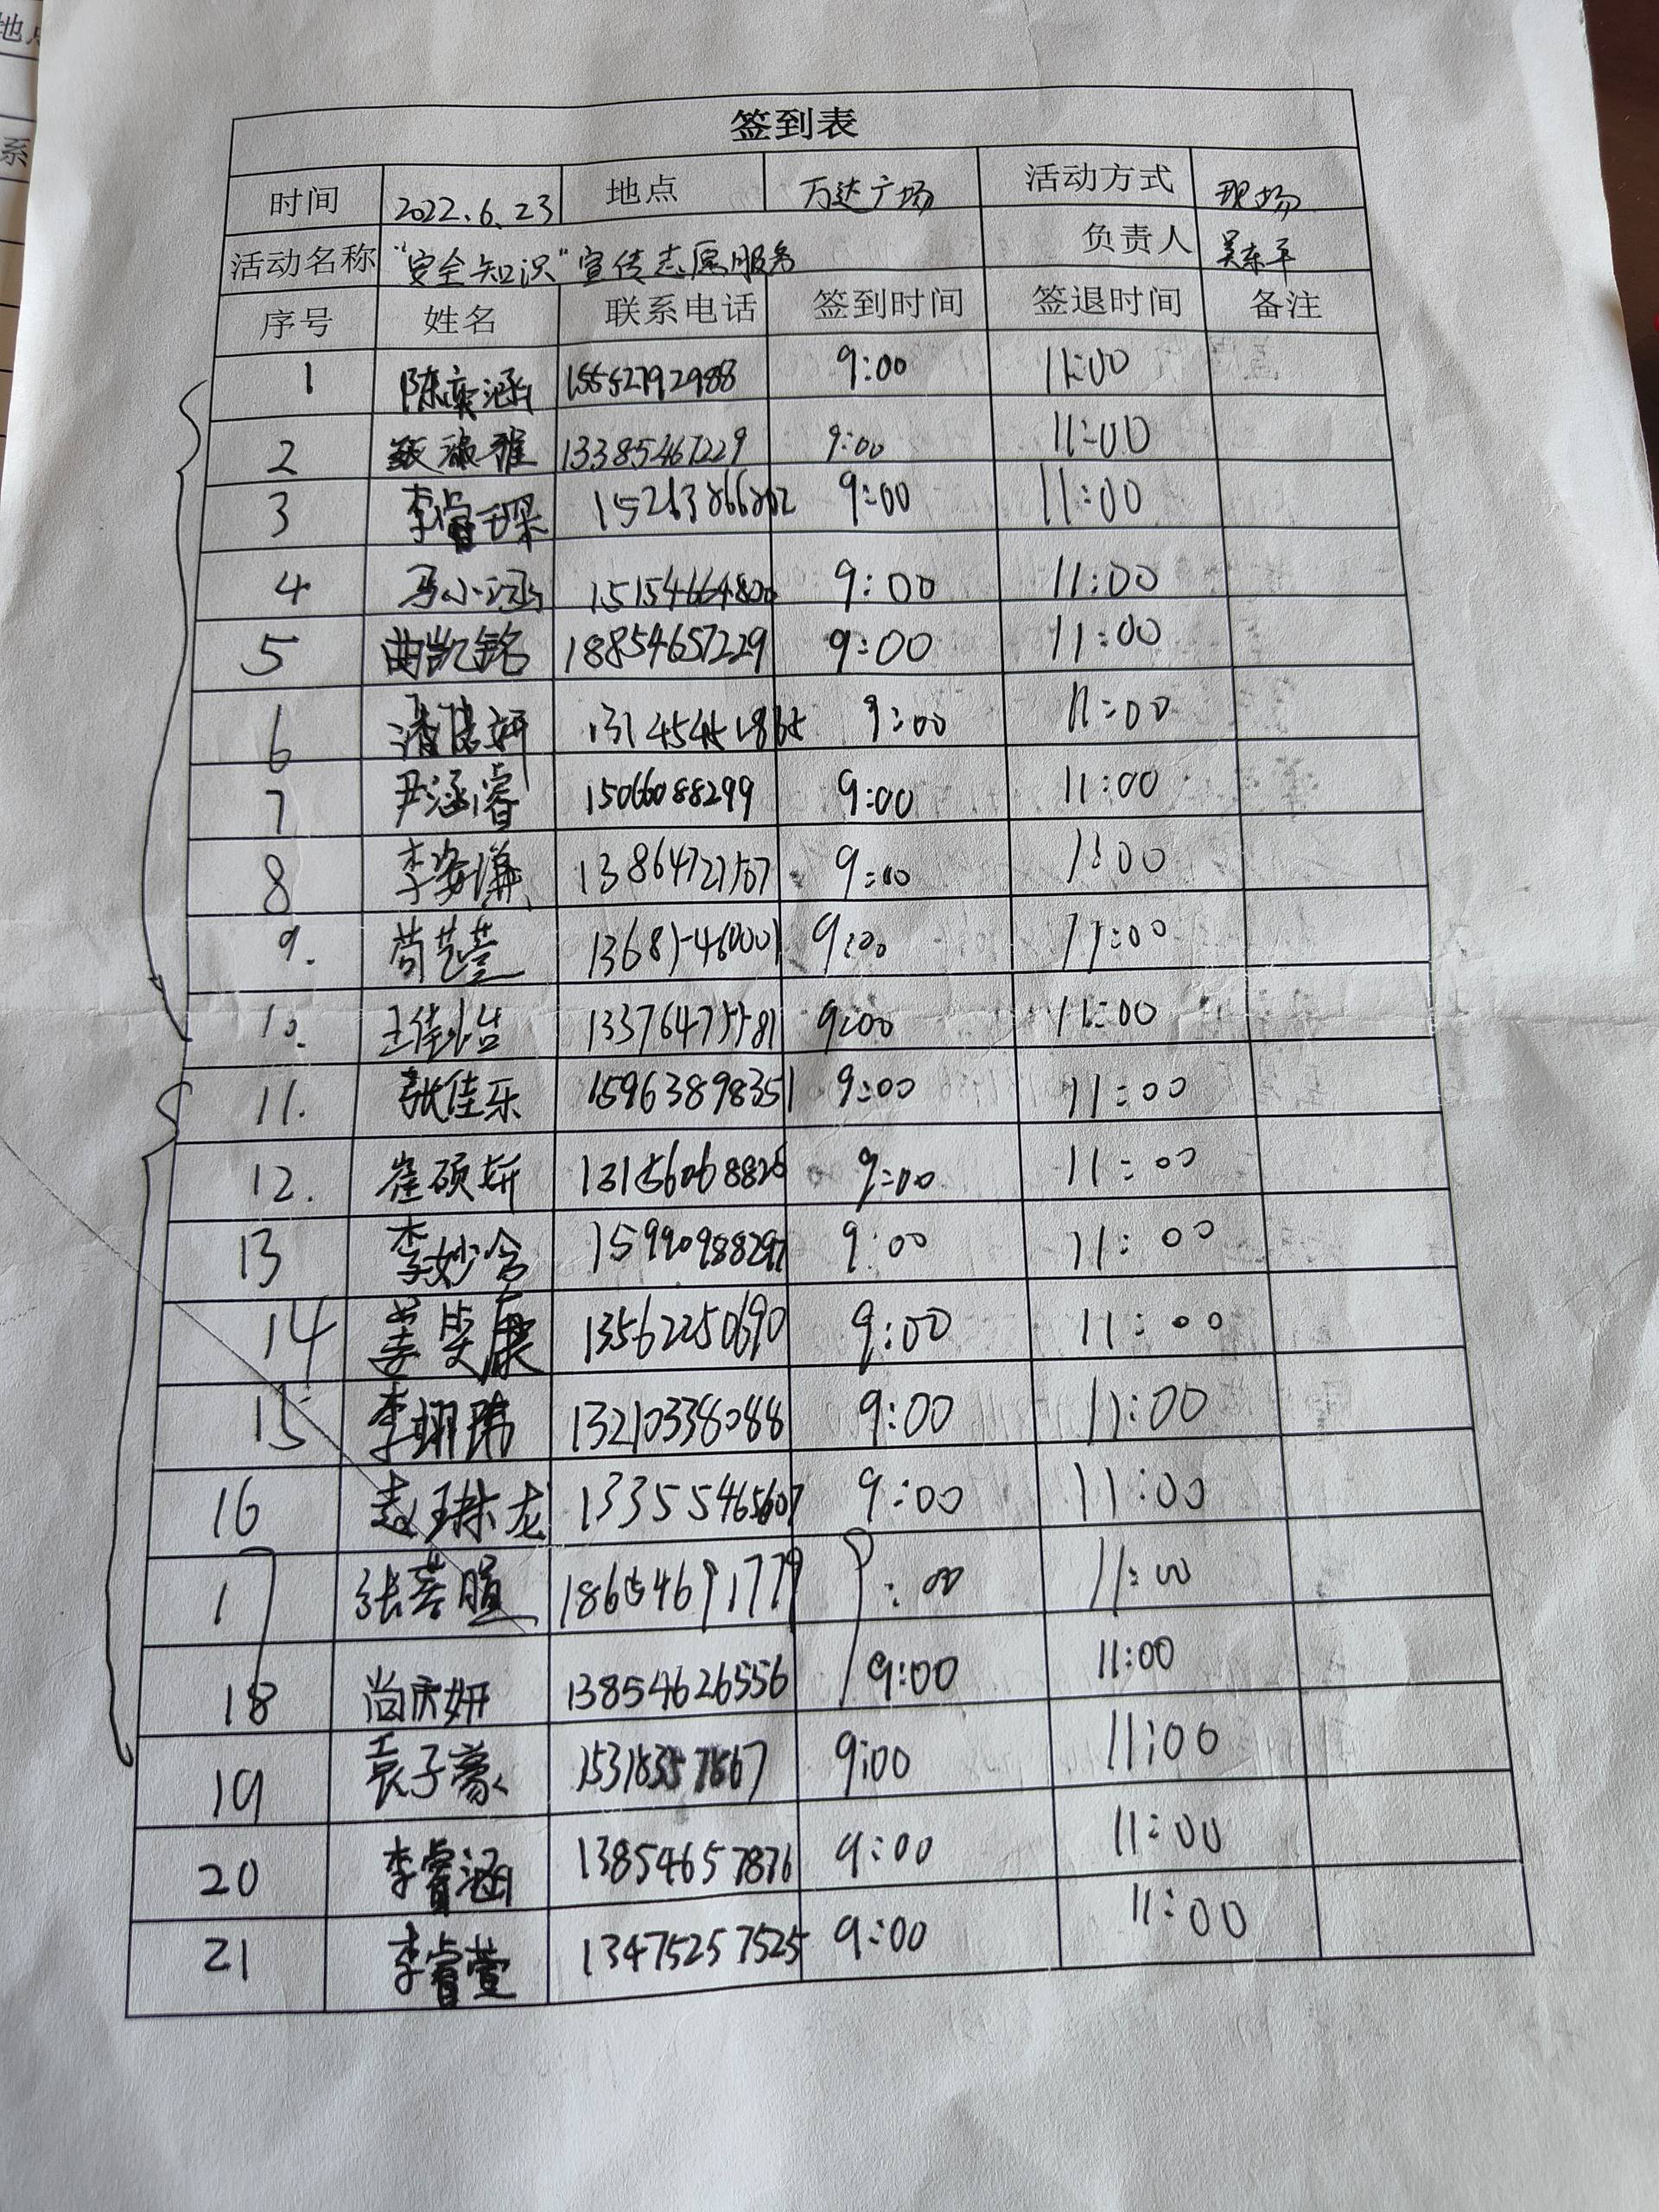 签到表
时间 2022.6.23 地点 万达广场 活动方式 现场
活动名称 “安全知识”宣传志愿服务 负责人 吴东平
序号 姓名 联系电话 签到时间 签退时间 备注
1 陈奕涵 15552792988 9:00 11:00
2 13385467229 9:00 11:00
3 李睿琛 9:00 11:00
4 马小涵 15154664800 9:00 11:00
5 曲凯铭 18854657229 9:00 11:00
6 9:00 11:00
7 尹涵睿 15066088299 9:00 11:00
8 李姿谦 13864727507 9:00 11:00
9. 苟芝萱 9:00 11:00
10. 王佳怡 13376475581 9:00 11:00
11. 张佳乐 15963898351 9:00 11:00
12. 崔硕妍 13156068826 9:00 11:00
13 李妙含 9:00 11:00
14 姜奕康 13562250690 9:00 11:00
15 李翊玮 13210338088 9:00 11:00
16 赵琳龙 13355465607 9:00 11:00
17 18654691779 9:00 11:00
18 尚庆妍 13854626556 9:00 11:00
19 袁子豪 9:00 11:00
20 李睿涵 13854657876 9:00 11:00
21 李睿萱 13475257525 9:00 11:00
地点
系